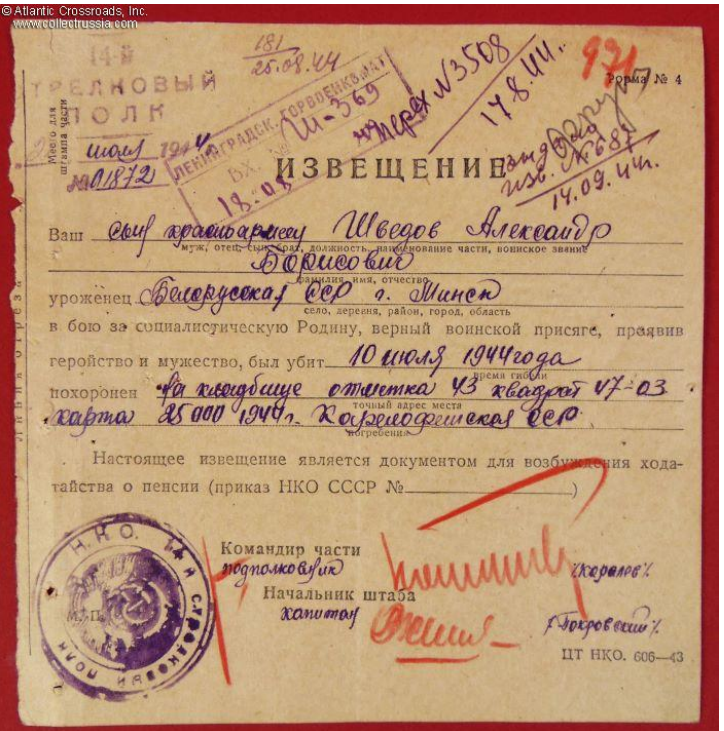 © Atlantic Crossroads, Inc.
www.collectrussia.com
14-й
ТРЕЛКОВЫЙ
ПОЛК
Место для
штампа части
июля 1944
№ 01872
181
25.08.44
ЛЕНИНГРАДСК. ГОРВОЕНКОМАТ
ВХ. № Ш-369
18.08
N3508
17.8.44.
971
Форма № 4
изв. №687
14.09.44г.
ИЗВЕЩЕНИЕ
Ваш сын красноармеец Шведов Александр
муж, отец, сын, брат, должность, наименование части, воинское звание
Борисович
фамилия, имя, отчество
уроженец Белорусская ССР г. Минск
село, деревня, район, город, область
в бою за социалистическую Родину, верный воинской присяге, проявив
геройство и мужество, был убит 10 июля 1944 года
время гибели
похоронен на кладбище отметка 43 квадрат 47-03
точный адрес места
карта 25000 1944г. Карелофинская ССР
погребения
Настоящее извещение является документом для возбуждения хода-
тайства о пенсии (приказ НКО СССР № )
Командир части
подполковник
/Королев/
Начальник штаба
капитан
/Покровский/
М. П.
Н.К.О. 14-й СТРЕЛКОВЫЙ ПОЛК
ЦТ НКО. 606—43